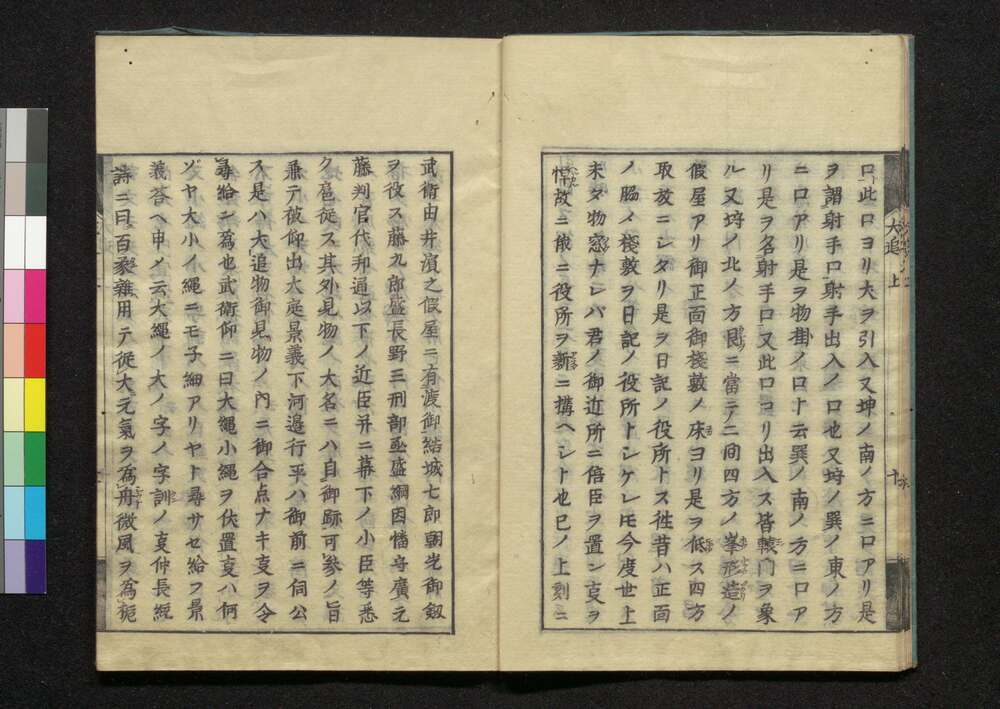 口此口ヨリ犬ヲ引入又坤ノ南ノ方ニ口アリ是
ヲ謂射手口射手出入ノ口也又埒ノ巽ノ東ノ方
ニ口アリ是ヲ物掛ノ口ト云巽ノ南ノ方ニ口ア
リ是ヲ名射手口又此口ヨリ出入ス皆轅门ヲ象
ル又埒ノ北ノ方艮ニ當テノ二间四方ノ峯形造ノ
假屋アリ御正面御棧敷ノ床ヨリ是ヲ低ス四方
取放ニシタリ是ヲ日記ノ役所トス徃昔ハ正面
ノ脇メ棧敷ヲ日記ノ役所トシケレ𪜈今度世上
未タ物窓ナレバ君ノ御近所ニ倍臣ヲ置ン叓ヲ
憚故ニ俄ニ役所ヲ新ニ搆ヘシト也巳ノ上刻ニ
犬追 上
十
武衛由井濱之假屋ニ有渡御結城七郎朝光御釼
ヲ役ス藤九郎盛長野三刑部亟盛綱因幡守廣元
藤判官代邦通以下ノ近臣并ニ幕下ノ小臣等悉
ク扈從ス其外見物ノ大名ニハ自御跡可参ノ旨
兼テ被仰出大庭景義下河邉行平ハ御前ニ伺公
ス是ハ犬追物御見物ノ内ニ御合点ナキ叓ヲ令
尋給ン為也武衛仰ニ曰大縄小縄ヲ伏置叓ハ何
ゾヤ大小ノ縄ニモ子細アリヤト尋サセ給フ景
義答ヘ申メ云大縄ノ大ノ字ノ字訓ノ叓仲長統
詩ニ曰百家雜用テ從大元氣ヲ為舟微風ヲ為柁